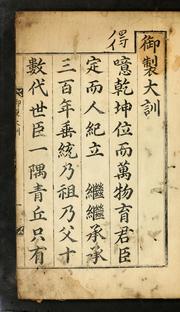 御製大訓
得
噫乾坤位而萬物育君臣
定而人紀立　繼繼承承
三百年垂統乃祖乃父十
數代世臣一隅青丘只有